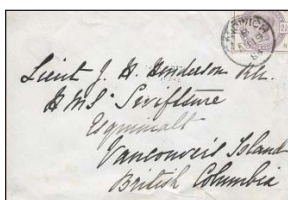 Lieut J. H. Henderson R.N.
H M S Swiftsure
Esquimalt
Vancouver's Island
British Columbia